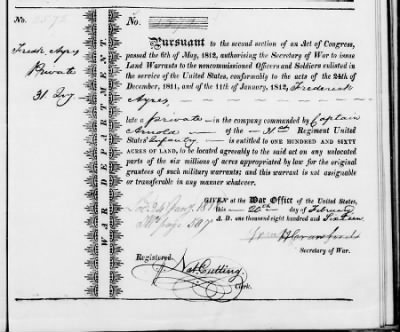 No.
Fredk Ayres
Private
31 Inf
WAR DEPARTMENT.
No.
Pursuant to the second section of an Act of Congress,
passed the 6th of May, 1812, authorising the Secretary of War to issue
Land Warrants to the noncommissioned Officers and Soldiers enlisted in
the service of the United States, conformably to the acts of the 24th of
December, 1811, and of the 11th of January, 1812, Frederick
Ayres,
late a private in the company commanded by Captain
Arnold of the 31st Regiment United
States' Infantry is entitled to ONE HUNDRED AND SIXTY
ACRES OF LAND, to be located agreeably to the said act on any unlocated
parts of the six millions of acres appropriated by law for the original
grantees of such military warrants; and this warrant is not assignable
or transferable in any manner whatever.
GIVEN at the War Office of the United States,
this 20th day of February
A. D. one thousand eight hundred and Sixteen
Wm H Crawford
Secretary of War.
Registered.
Nat Cutting
Clerk.